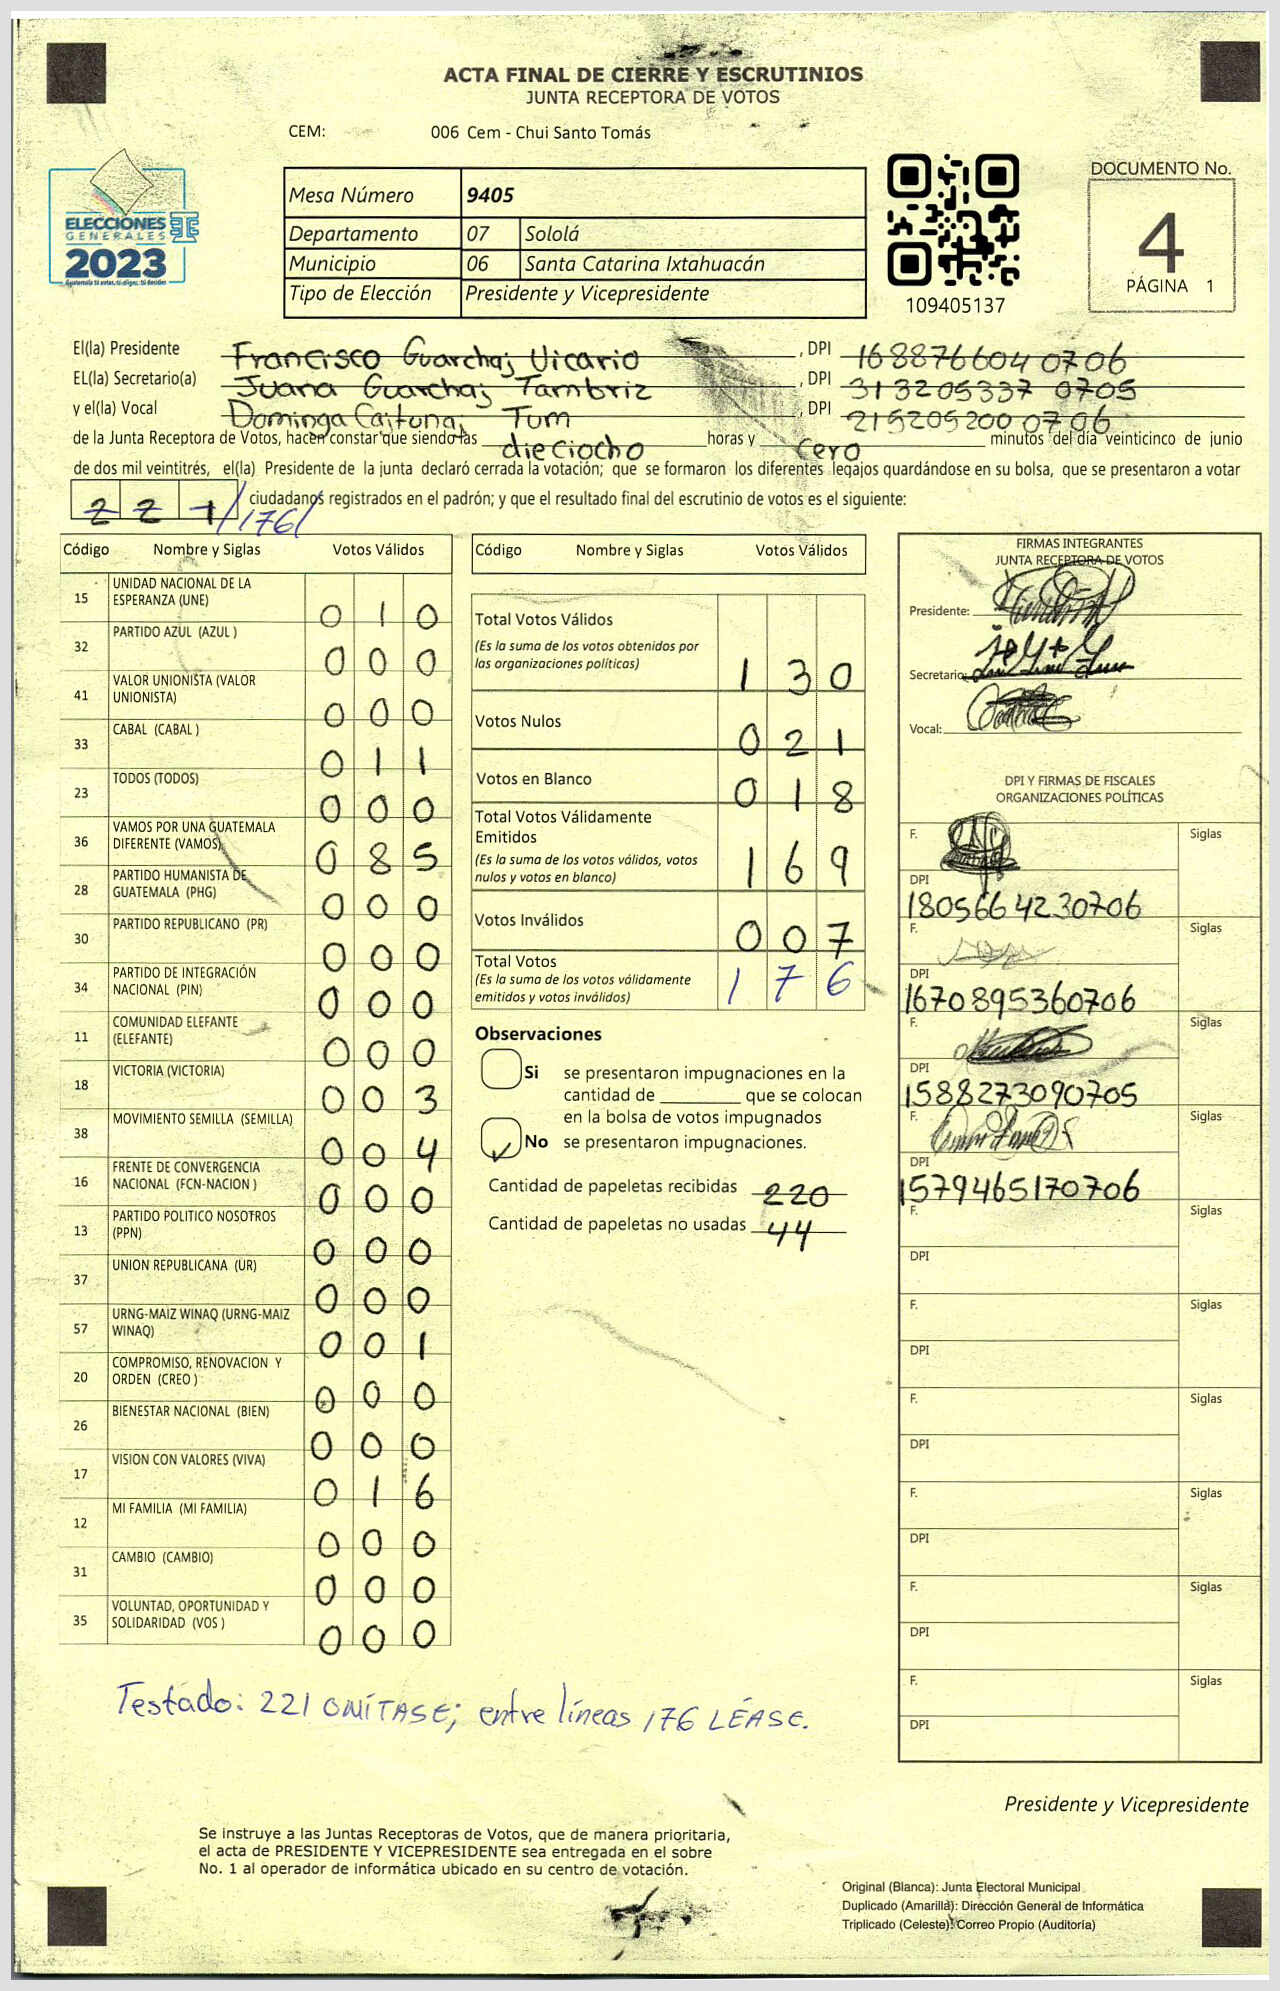 ACTA FINAL DE CIERRE Y ESCRUTINIOS
JUNTA RECEPTORA DE VOTOS
CEM: 006 Cem - Chui Santo Tomás
ELECCIONES
GENERALES
2023
Guatemala tú votas, tú eliges, tú decides
TSE
Mesa Número 9405
Departamento 07 Sololá
Municipio 06 Santa Catarina Ixtahuacán
Tipo de Elección Presidente y Vicepresidente
109405137
DOCUMENTO No.
4
PÁGINA 1
El(la) Presidente Francisco Guarchaj Vicario , DPI 168876604 0706
EL(la) Secretario(a) Juana Guarchaj Tambriz , DPI 313205337 0705
y el(la) Vocal Dominga Tum , DPI 215205200 0706
de la Junta Receptora de Votos, hacen constar que siendo las dieciocho horas y cero minutos del día veinticinco de junio
de dos mil veintitrés, el(la) Presidente de la junta declaró cerrada la votación; que se formaron los diferentes legajos quardándose en su bolsa, que se presentaron a votar
221 /176/ ciudadanos registrados en el padrón; y que el resultado final del escrutinio de votos es el siguiente:
Código Nombre y Siglas Votos Válidos
15 UNIDAD NACIONAL DE LA ESPERANZA (UNE) 0 1 0
32 PARTIDO AZUL (AZUL ) 0 0 0
41 VALOR UNIONISTA (VALOR UNIONISTA) 0 0 0
33 CABAL (CABAL ) 0 1 1
23 TODOS (TODOS) 0 0 0
36 VAMOS POR UNA GUATEMALA DIFERENTE (VAMOS) 0 8 5
28 PARTIDO HUMANISTA DE GUATEMALA (PHG) 0 0 0
30 PARTIDO REPUBLICANO (PR) 0 0 0
34 PARTIDO DE INTEGRACIÓN NACIONAL (PIN) 0 0 0
11 COMUNIDAD ELEFANTE (ELEFANTE) 0 0 0
18 VICTORIA (VICTORIA) 0 0 3
38 MOVIMIENTO SEMILLA (SEMILLA) 0 0 4
16 FRENTE DE CONVERGENCIA NACIONAL (FCN-NACION ) 0 0 0
13 PARTIDO POLITICO NOSOTROS (PPN) 0 0 0
37 UNION REPUBLICANA (UR) 0 0 0
57 URNG-MAIZ WINAQ (URNG-MAIZ WINAQ) 0 0 1
20 COMPROMISO, RENOVACION Y ORDEN (CREO ) 0 0 0
26 BIENESTAR NACIONAL (BIEN) 0 0 0
17 VISION CON VALORES (VIVA) 0 1 6
12 MI FAMILIA (MI FAMILIA) 0 0 0
31 CAMBIO (CAMBIO) 0 0 0
35 VOLUNTAD, OPORTUNIDAD Y SOLIDARIDAD (VOS ) 0 0 0
Código Nombre y Siglas Votos Válidos
Total Votos Válidos 1 3 0
(Es la suma de los votos obtenidos por
las organizaciones políticas)
Votos Nulos 0 2 1
Votos en Blanco 0 1 8
Total Votos Válidamente
Emitidos 1 6 9
(Es la suma de los votos válidos, votos
nulos y votos en blanco)
Votos Inválidos 0 0 7
Total Votos 1 7 6
(Es la suma de los votos válidamente
emitidos y votos inválidos)
Observaciones
Si se presentaron impugnaciones en la
cantidad de ________ que se colocan
en la bolsa de votos impugnados
✓ No se presentaron impugnaciones.
Cantidad de papeletas recibidas 220
Cantidad de papeletas no usadas 44
FIRMAS INTEGRANTES
JUNTA RECEPTORA DE VOTOS
Presidente:
Secretario:
Vocal:
DPI Y FIRMAS DE FISCALES
ORGANIZACIONES POLÍTICAS
F. Siglas
DPI
1805664230706
F. Siglas
DPI
1670895360706
F. Siglas
DPI
1588273090705
F. Siglas
DPI
1579465170706
F. Siglas
DPI
F. Siglas
DPI
F. Siglas
DPI
F. Siglas
DPI
F. Siglas
DPI
F. Siglas
DPI
Testado: 221 OMÍTASE; entre líneas 176 LÉASE.
Presidente y Vicepresidente
Se instruye a las Juntas Receptoras de Votos, que de manera prioritaria,
el acta de PRESIDENTE Y VICEPRESIDENTE sea entregada en el sobre
No. 1 al operador de informática ubicado en su centro de votación.
Original (Blanca): Junta Electoral Municipal
Duplicado (Amarilla): Dirección General de Informática
Triplicado (Celeste): Correo Propio (Auditoría)